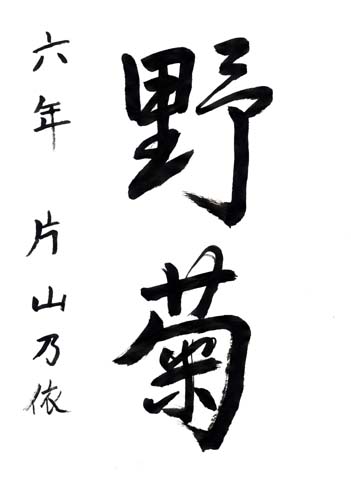 野菊
六年 片山乃依